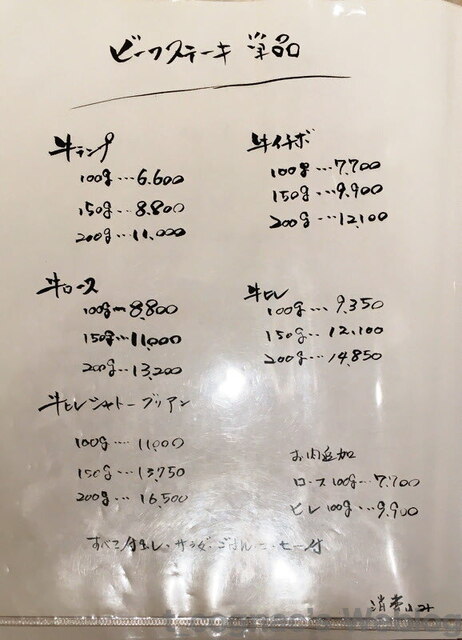 ビーフステーキ 単品
牛ランプ
100g…6.600
150g…8.800
200g…11,000
牛イチボ
100g…7.700
150g…9.900
200g…12,100
牛ロース
100g…8,800
150g…11,000
200g…13,200
牛ヒレ
100g…9,350
150g…12,100
200g…14,850
牛ヒレシャトーブリアン
100g…11,000
150g…13,750
200g…16,500
お肉追加
ロース100g…7,700
ヒレ100g…9,900
すべて付出し・サラダ・ごはん・コーヒー付
消費込み